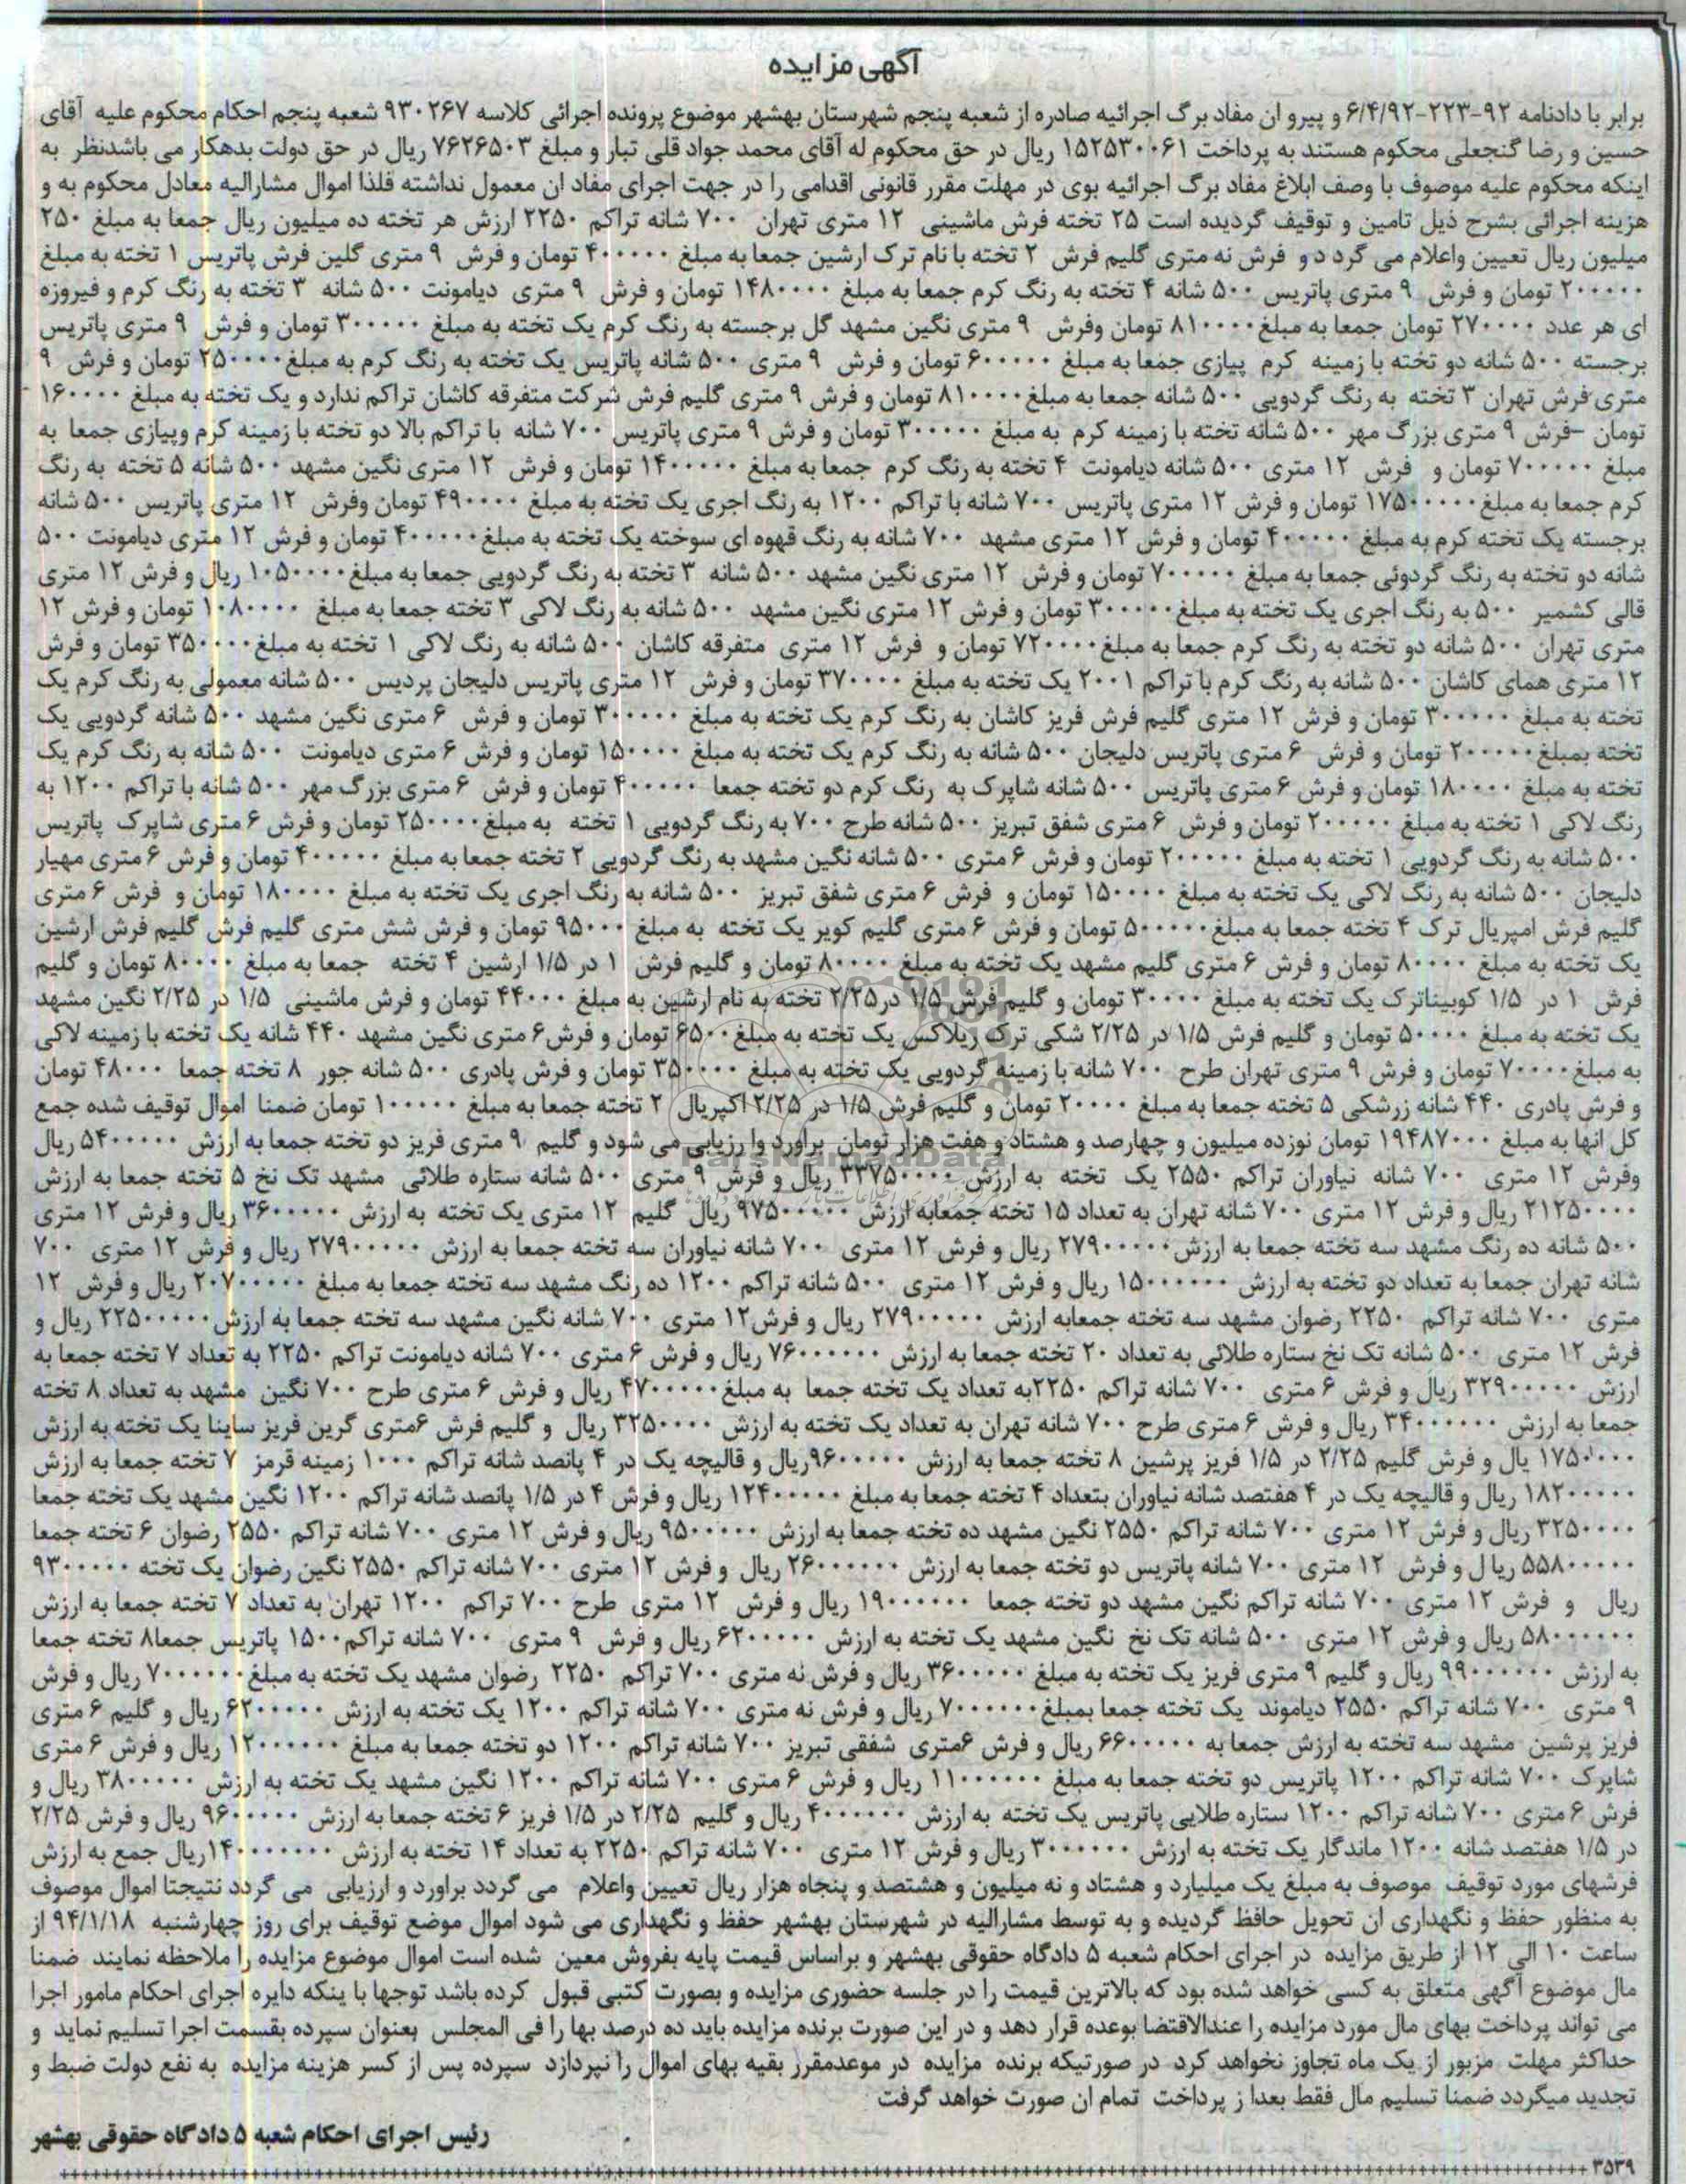 آگهی مزایده
برابر با دادنامه ۹۲-۲۲۳-۶/۴/۹۲ و پیرو ان مفاد برگ اجرائیه صادره از شعبه پنجم شهرستان بهشهر موضوع پرونده اجرائی کلاسه ۹۳۰۲۶۷ شعبه پنجم احکام محکوم علیه آقای
حسین و رضا گنجعلی محکوم هستند به پرداخت ۱۵۲۵۳۰۰۶۱ ریال در حق محکوم له آقای محمد جواد قلی تبار و مبلغ ۷۶۲۶۵۰۳ ریال در حق دولت بدهکار می باشدنظر به
اینکه محکوم علیه موصوف با وصف ابلاغ مفاد برگ اجرائیه بوی در مهلت مقرر قانونی اقدامی را در جهت اجرای مفاد ان معمول نداشته فلذا اموال مشارالیه معادل محکوم به و
هزینه اجرائی بشرح ذیل تامین و توقیف گردیده است ۲۵ تخته فرش ماشینی ۱۲ متری تهران ۷۰۰ شانه تراکم ۲۲۵۰ ارزش هر تخته ده میلیون ریال جمعا به مبلغ ۲۵۰
میلیون ریال تعیین واعلام می گرد د و فرش نه متری گلیم فرش ۲ تخته با نام ترک ارشین جمعا به مبلغ ۴۰۰۰۰۰ تومان و فرش ۹ متری گلین فرش پاتریس ۱ تخته به مبلغ
۲۰۰۰۰۰ تومان و فرش ۹ متری پاتریس ۵۰۰ شانه ۴ تخته به رنگ کرم جمعا به مبلغ ۱۴۸۰۰۰۰ تومان و فرش ۹ متری دیامونت ۵۰۰ شانه ۳ تخته به رنگ کرم و فیروزه
ای هر عدد ۲۷۰۰۰۰ تومان جمعا به مبلغ۸۱۰۰۰۰ تومان وفرش ۹ متری نگین مشهد گل برجسته به رنگ کرم یک تخته به مبلغ ۳۰۰۰۰۰ تومان و فرش ۹ متری پاتریس
برجسته ۵۰۰ شانه دو تخته با زمینه کرم پیازی جمعا به مبلغ ۶۰۰۰۰۰ تومان و فرش ۹ متری ۵۰۰ شانه پاتریس یک تخته به رنگ کرم به مبلغ۲۵۰۰۰۰ تومان و فرش ۹
متری فرش تهران ۳ تخته به رنگ گردویی ۵۰۰ شانه جمعا به مبلغ۸۱۰۰۰۰ تومان و فرش ۹ متری گلیم فرش شرکت متفرقه کاشان تراکم ندارد و یک تخته به مبلغ ۱۶۰۰۰۰
تومان –فرش ۹ متری بزرگ مهر ۵۰۰ شانه تخته با زمینه کرم به مبلغ ۳۰۰۰۰۰ تومان و فرش ۹ متری پاتریس ۷۰۰ شانه با تراکم بالا دو تخته با زمینه کرم وپیازی جمعا به
مبلغ ۷۰۰۰۰۰ تومان و فرش ۱۲ متری ۵۰۰ شانه دیامونت ۴ تخته به رنگ کرم جمعا به مبلغ ۱۴۰۰۰۰۰ تومان و فرش ۱۲ متری نگین مشهد ۵۰۰ شانه ۵ تخته به رنگ
کرم جمعا به مبلغ۱۷۵۰۰۰۰۰ تومان و فرش ۱۲ متری پاتریس ۷۰۰ شانه با تراکم ۱۲۰۰ به رنگ اجری یک تخته به مبلغ ۴۹۰۰۰۰ تومان وفرش ۱۲ متری پاتریس ۵۰۰ شانه
برجسته یک تخته کرم به مبلغ ۴۰۰۰۰۰ تومان و فرش ۱۲ متری مشهد ۷۰۰ شانه به رنگ قهوه ای سوخته یک تخته به مبلغ۴۰۰۰۰۰ تومان و فرش ۱۲ متری دیامونت ۵۰۰
شانه دو تخته به رنگ گردوئی جمعا به مبلغ ۷۰۰۰۰۰ تومان و فرش ۱۲ متری نگین مشهد ۵۰۰ شانه ۳ تخته به رنگ گردویی جمعا به مبلغ۱۰۵۰۰۰۰ ریال و فرش ۱۲ متری
قالی کشمیر ۵۰۰ به رنگ اجری یک تخته به مبلغ۳۰۰۰۰۰ تومان و فرش ۱۲ متری نگین مشهد ۵۰۰ شانه به رنگ لاکی ۳ تخته جمعا به مبلغ ۱۰۸۰۰۰۰ تومان و فرش ۱۲
متری تهران ۵۰۰ شانه دو تخته به رنگ کرم جمعا به مبلغ۷۲۰۰۰۰ تومان و فرش ۱۲ متری متفرقه کاشان ۵۰۰ شانه به رنگ لاکی ۱ تخته به مبلغ۳۵۰۰۰۰ تومان و فرش
۱۲ متری همای کاشان ۵۰۰ شانه به رنگ کرم با تراکم ۲۰۰۱ یک تخته به مبلغ ۳۷۰۰۰۰ تومان و فرش ۱۲ متری پاتریس دلیجان پردیس ۵۰۰ شانه معمولی به رنگ کرم یک
تخته به مبلغ ۳۰۰۰۰۰ تومان و فرش ۱۲ متری گلیم فرش فریز کاشان به رنگ کرم یک تخته به مبلغ ۳۰۰۰۰۰ تومان و فرش ۶ متری نگین مشهد ۵۰۰ شانه گردویی یک
تخته بمبلغ۲۰۰۰۰۰ تومان و فرش ۶ متری پاتریس دلیجان ۵۰۰ شانه به رنگ کرم یک تخته به مبلغ ۱۵۰۰۰۰ تومان و فرش ۶ متری دیامونت ۵۰۰ شانه به رنگ کرم یک
تخته به مبلغ ۱۸۰۰۰۰ تومان و فرش ۶ متری پاتریس ۵۰۰ شانه شاپرک به رنگ کرم دو تخته جمعا ۴۰۰۰۰۰ تومان و فرش ۶ متری بزرگ مهر ۵۰۰ شانه با تراکم ۱۲۰۰ به
رنگ لاکی ۱ تخته به مبلغ ۲۰۰۰۰۰ تومان و فرش ۶ متری شفق تبریز ۵۰۰ شانه طرح ۷۰۰ به رنگ گردویی ۱ تخته به مبلغ۲۵۰۰۰۰ تومان و فرش ۶ متری شاپرک پاتریس
۵۰۰ شانه به رنگ گردویی ۱ تخته به مبلغ ۲۰۰۰۰۰ تومان و فرش ۶ متری ۵۰۰ شانه نگین مشهد به رنگ گردویی ۲ تخته جمعا به مبلغ ۴۰۰۰۰۰ تومان و فرش ۶ متری مهیار
دلیجان ۵۰۰ شانه به رنگ لاکی یک تخته به مبلغ ۱۵۰۰۰۰ تومان و فرش ۶ متری شفق تبریز ۵۰۰ شانه به رنگ اجری یک تخته به مبلغ ۱۸۰۰۰۰ تومان و فرش ۶ متری
گلیم فرش امپریال ترک ۴ تخته جمعا به مبلغ۵۰۰۰۰۰ تومان و فرش ۶ متری گلیم کویر یک تخته به مبلغ ۹۵۰۰۰ تومان و فرش شش متری گلیم فرش گلیم فرش ارشین
یک تخته به مبلغ ۸۰۰۰۰ تومان و فرش ۶ متری گلیم مشهد یک تخته به مبلغ ۸۰۰۰۰ تومان و گلیم فرش ۱ در ۱/۵ ارشین ۴ تخته جمعا به مبلغ ۸۰۰۰۰ تومان و گلیم
فرش ۱ در ۱/۵ کوبیناترک یک تخته به مبلغ ۳۰۰۰۰ تومان و گلیم فرش ۱/۵ در۲/۲۵ تخته به نام ارشین به مبلغ ۴۴۰۰۰ تومان و فرش ماشینی ۱/۵ در ۲/۲۵ نگین مشهد
یک تخته به مبلغ ۵۰۰۰۰ تومان و گلیم فرش ۱/۵ در ۲/۲۵ شکی ترک ریلاکس یک تخته به مبلغ۶۵۰۰۰ تومان و فرش۶ متری نگین مشهد ۴۴۰ شانه یک تخته با زمینه لاکی
به مبلغ۷۰۰۰۰ تومان و فرش ۹ متری تهران طرح ۷۰۰ شانه با زمینه گردویی یک تخته به مبلغ ۳۵۰۰۰۰ تومان و فرش پادری ۵۰۰ شانه جور ۸ تخته جمعا ۴۸۰۰۰ تومان
و فرش پادری ۴۴۰ شانه زرشکی ۵ تخته جمعا به مبلغ ۲۰۰۰۰ تومان و گلیم فرش ۱/۵ در ۲/۲۵ اکپریال ۲ تخته جمعا به مبلغ ۱۰۰۰۰۰ تومان ضمنا اموال توقیف شده جمع
کل انها به مبلغ ۱۹۴۸۷۰۰۰ تومان نوزده میلیون و چهارصد و هشتاد و هفت هزار تومان براورد وا رزیابی می شود و گلیم ۹ متری فریز دو تخته جمعا به ارزش ۵۴۰۰۰۰۰ ریال
وفرش ۱۲ متری ۷۰۰ شانه نیاوران تراکم ۲۵۵۰ یک تخته به ارزش ۳۳۷۵۰۰۰۰ ریال و فرش ۹ متری ۵۰۰ شانه ستاره طلائی مشهد تک نخ ۵ تخته جمعا به ارزش
۲۱۲۵۰۰۰۰ ریال و فرش ۱۲ متری ۷۰۰ شانه تهران به تعداد ۱۵ تخته جمعابه ارزش ۹۷۵۰۰۰۰۰ ریال گلیم ۱۲ متری یک تخته به ارزش ۳۶۰۰۰۰۰ ریال و فرش ۱۲ متری
۵۰۰ شانه ده رنگ مشهد سه تخته جمعا به ارزش۲۷۹۰۰۰۰۰ ریال و فرش ۱۲ متری ۷۰۰ شانه نیاوران سه تخته جمعا به ارزش ۲۷۹۰۰۰۰۰ ریال و فرش ۱۲ متری ۷۰۰
شانه تهران جمعا به تعداد دو تخته به ارزش ۱۵۰۰۰۰۰۰ ریال و فرش ۱۲ متری ۵۰۰ شانه تراکم ۱۲۰۰ ده رنگ مشهد سه تخته جمعا به مبلغ ۲۰۷۰۰۰۰۰ ریال و فرش ۱۲
متری ۷۰۰ شانه تراکم ۲۲۵۰ رضوان مشهد سه تخته جمعابه ارزش ۲۷۹۰۰۰۰۰ ریال و فرش۱۲ متری ۷۰۰ شانه نگین مشهد سه تخته جمعا به ارزش۲۲۵۰۰۰۰۰ ریال و
فرش ۱۲ متری ۵۰۰ شانه تک نخ ستاره طلائی به تعداد ۲۰ تخته جمعا به ارزش ۷۶۰۰۰۰۰۰ ریال و فرش ۶ متری ۷۰۰ شانه دیامونت تراکم ۲۲۵۰ به تعداد ۷ تخته جمعا به
ارزش ۳۲۹۰۰۰۰۰ ریال و فرش ۶ متری ۷۰۰ شانه تراکم ۲۲۵۰به تعداد یک تخته جمعا به مبلغ۴۷۰۰۰۰۰ ریال و فرش ۶ متری طرح ۷۰۰ نگین مشهد به تعداد ۸ تخته
جمعا به ارزش ۳۴۰۰۰۰۰۰ ریال و فرش ۶ متری طرح ۷۰۰ شانه تهران به تعداد یک تخته به ارزش ۳۲۵۰۰۰۰ ریال و گلیم فرش ۶متری گرین فریز ساینا یک تخته به ارزش
۱۷۵۰۰۰۰ یال و فرش گلیم ۲/۲۵ در ۱/۵ فریز پرشین ۸ تخته جمعا به ارزش ۹۶۰۰۰۰۰ریال و قالیچه یک در ۴ پانصد شانه تراکم ۱۰۰۰ زمینه قرمز ۷ تخته جمعا به ارزش
۱۸۲۰۰۰۰۰ ریال و قالیچه یک در ۴ هفتصد شانه نیاوران بتعداد ۴ تخته جمعا به مبلغ ۱۲۴۰۰۰۰۰ ریال و فرش ۴ در ۱/۵ پانصد شانه تراکم ۱۲۰۰ نگین مشهد یک تخته جمعا
۳۲۵۰۰۰۰ ریال و فرش ۱۲ متری ۷۰۰ شانه تراکم ۲۵۵۰ نگین مشهد ده تخته جمعا به ارزش ۹۵۰۰۰۰۰۰ ریال و فرش ۱۲ متری ۷۰۰ شانه تراکم ۲۵۵۰ رضوان ۶ تخته جمعا
۵۵۸۰۰۰۰۰ ریا ل و فرش ۱۲ متری ۷۰۰ شانه پاتریس دو تخته جمعا به ارزش ۲۶۰۰۰۰۰۰ ریال و فرش ۱۲ متری ۷۰۰ شانه تراکم ۲۵۵۰ نگین رضوان یک تخته ۹۳۰۰۰۰۰
ریال و فرش ۱۲ متری ۷۰۰ شانه تراکم نگین مشهد دو تخته جمعا ۱۹۰۰۰۰۰۰ ریال و فرش ۱۲ متری طرح ۷۰۰ تراکم ۱۲۰۰ تهران به تعداد ۷ تخته جمعا به ارزش
۵۸۰۰۰۰۰۰ ریال و فرش ۱۲ متری ۵۰۰ شانه تک نخ نگین مشهد یک تخته به ارزش ۶۲۰۰۰۰۰ ریال و فرش ۹ متری ۷۰۰ شانه تراکم۱۵۰۰ پاتریس جمعا۸ تخته جمعا
به ارزش ۹۹۰۰۰۰۰۰ ریال و گلیم ۹ متری فریز یک تخته به مبلغ ۳۶۰۰۰۰۰ ریال و فرش نه متری ۷۰۰ تراکم ۲۲۵۰ رضوان مشهد یک تخته به مبلغ۷۰۰۰۰۰۰ ریال و فرش
۹ متری ۷۰۰ شانه تراکم ۲۵۵۰ دیاموند یک تخته جمعا بمبلغ۷۰۰۰۰۰۰ ریال و فرش نه متری ۷۰۰ شانه تراکم ۱۲۰۰ یک تخته به ارزش ۶۲۰۰۰۰۰ ریال و گلیم ۶ متری
فریز پرشین مشهد سه تخته به ارزش جمعا به ۶۶۰۰۰۰۰ ریال و فرش ۶متری شفقی تبریز ۷۰۰ شانه تراکم ۱۲۰۰ دو تخته جمعا به مبلغ ۱۲۰۰۰۰۰۰ ریال و فرش ۶ متری
شاپرک ۷۰۰ شانه تراکم ۱۲۰۰ پاتریس دو تخته جمعا به مبلغ ۱۱۰۰۰۰۰۰ ریال و فرش ۶ متری ۷۰۰ شانه تراکم ۱۲۰۰ نگین مشهد یک تخته به ارزش ۳۸۰۰۰۰۰ ریال و
فرش ۶ متری ۷۰۰ شانه تراکم ۱۲۰۰ ستاره طلایی پاتریس یک تخته به ارزش ۴۰۰۰۰۰۰ ریال و گلیم ۲/۲۵ در ۱/۵ فریز ۶ تخته جمعا به ارزش ۹۶۰۰۰۰۰ ریال و فرش ۲/۲۵
در ۱/۵ هفتصد شانه ۱۲۰۰ ماندگار یک تخته به ارزش ۳۰۰۰۰۰۰ ریال و فرش ۱۲ متری ۷۰۰ شانه تراکم ۲۲۵۰ به تعداد ۱۴ تخته به ارزش ۱۴۰۰۰۰۰۰۰ریال جمع به ارزش
فرشهای مورد توقیف موصوف به مبلغ یک میلیارد و هشتاد و نه میلیون و هشتصد و پنجاه هزار ریال تعیین واعلام می گردد براورد و ارزیابی می گردد نتیجتا اموال موصوف
به منظور حفظ و نگهداری ان تحویل حافظ گردیده و به توسط مشارالیه در شهرستان بهشهر حفظ و نگهداری می شود اموال موضع توقیف برای روز چهارشنبه ۹۴/۱/۱۸ از
ساعت ۱۰ الی ۱۲ از طریق مزایده در اجرای احکام شعبه ۵ دادگاه حقوقی بهشهر و براساس قیمت پایه بفروش معین شده است اموال موضوع مزایده را ملاحظه نمایند ضمنا
مال موضوع آگهی متعلق به کسی خواهد شده بود که بالاترین قیمت را در جلسه حضوری مزایده و بصورت کتبی قبول کرده باشد توجها با ینکه دایره اجرای احکام مامور اجرا
می تواند پرداخت بهای مال مورد مزایده را عندالاقتضا بوعده قرار دهد و در این صورت برنده مزایده باید ده درصد بها را فی المجلس بعنوان سپرده بقسمت اجرا تسلیم نماید و
حداکثر مهلت مزبور از یک ماه تجاوز نخواهد کرد در صورتیکه برنده مزایده در موعدمقرر بقیه بهای اموال را نپردازد سپرده پس از کسر هزینه مزایده به نفع دولت ضبط و
تجدید میگردد ضمنا تسلیم مال فقط بعدا ز پرداخت تمام ان صورت خواهد گرفت
رئیس اجرای احکام شعبه ۵ دادگاه حقوقی بهشهر
۳۵۳۹
ParsNamadData